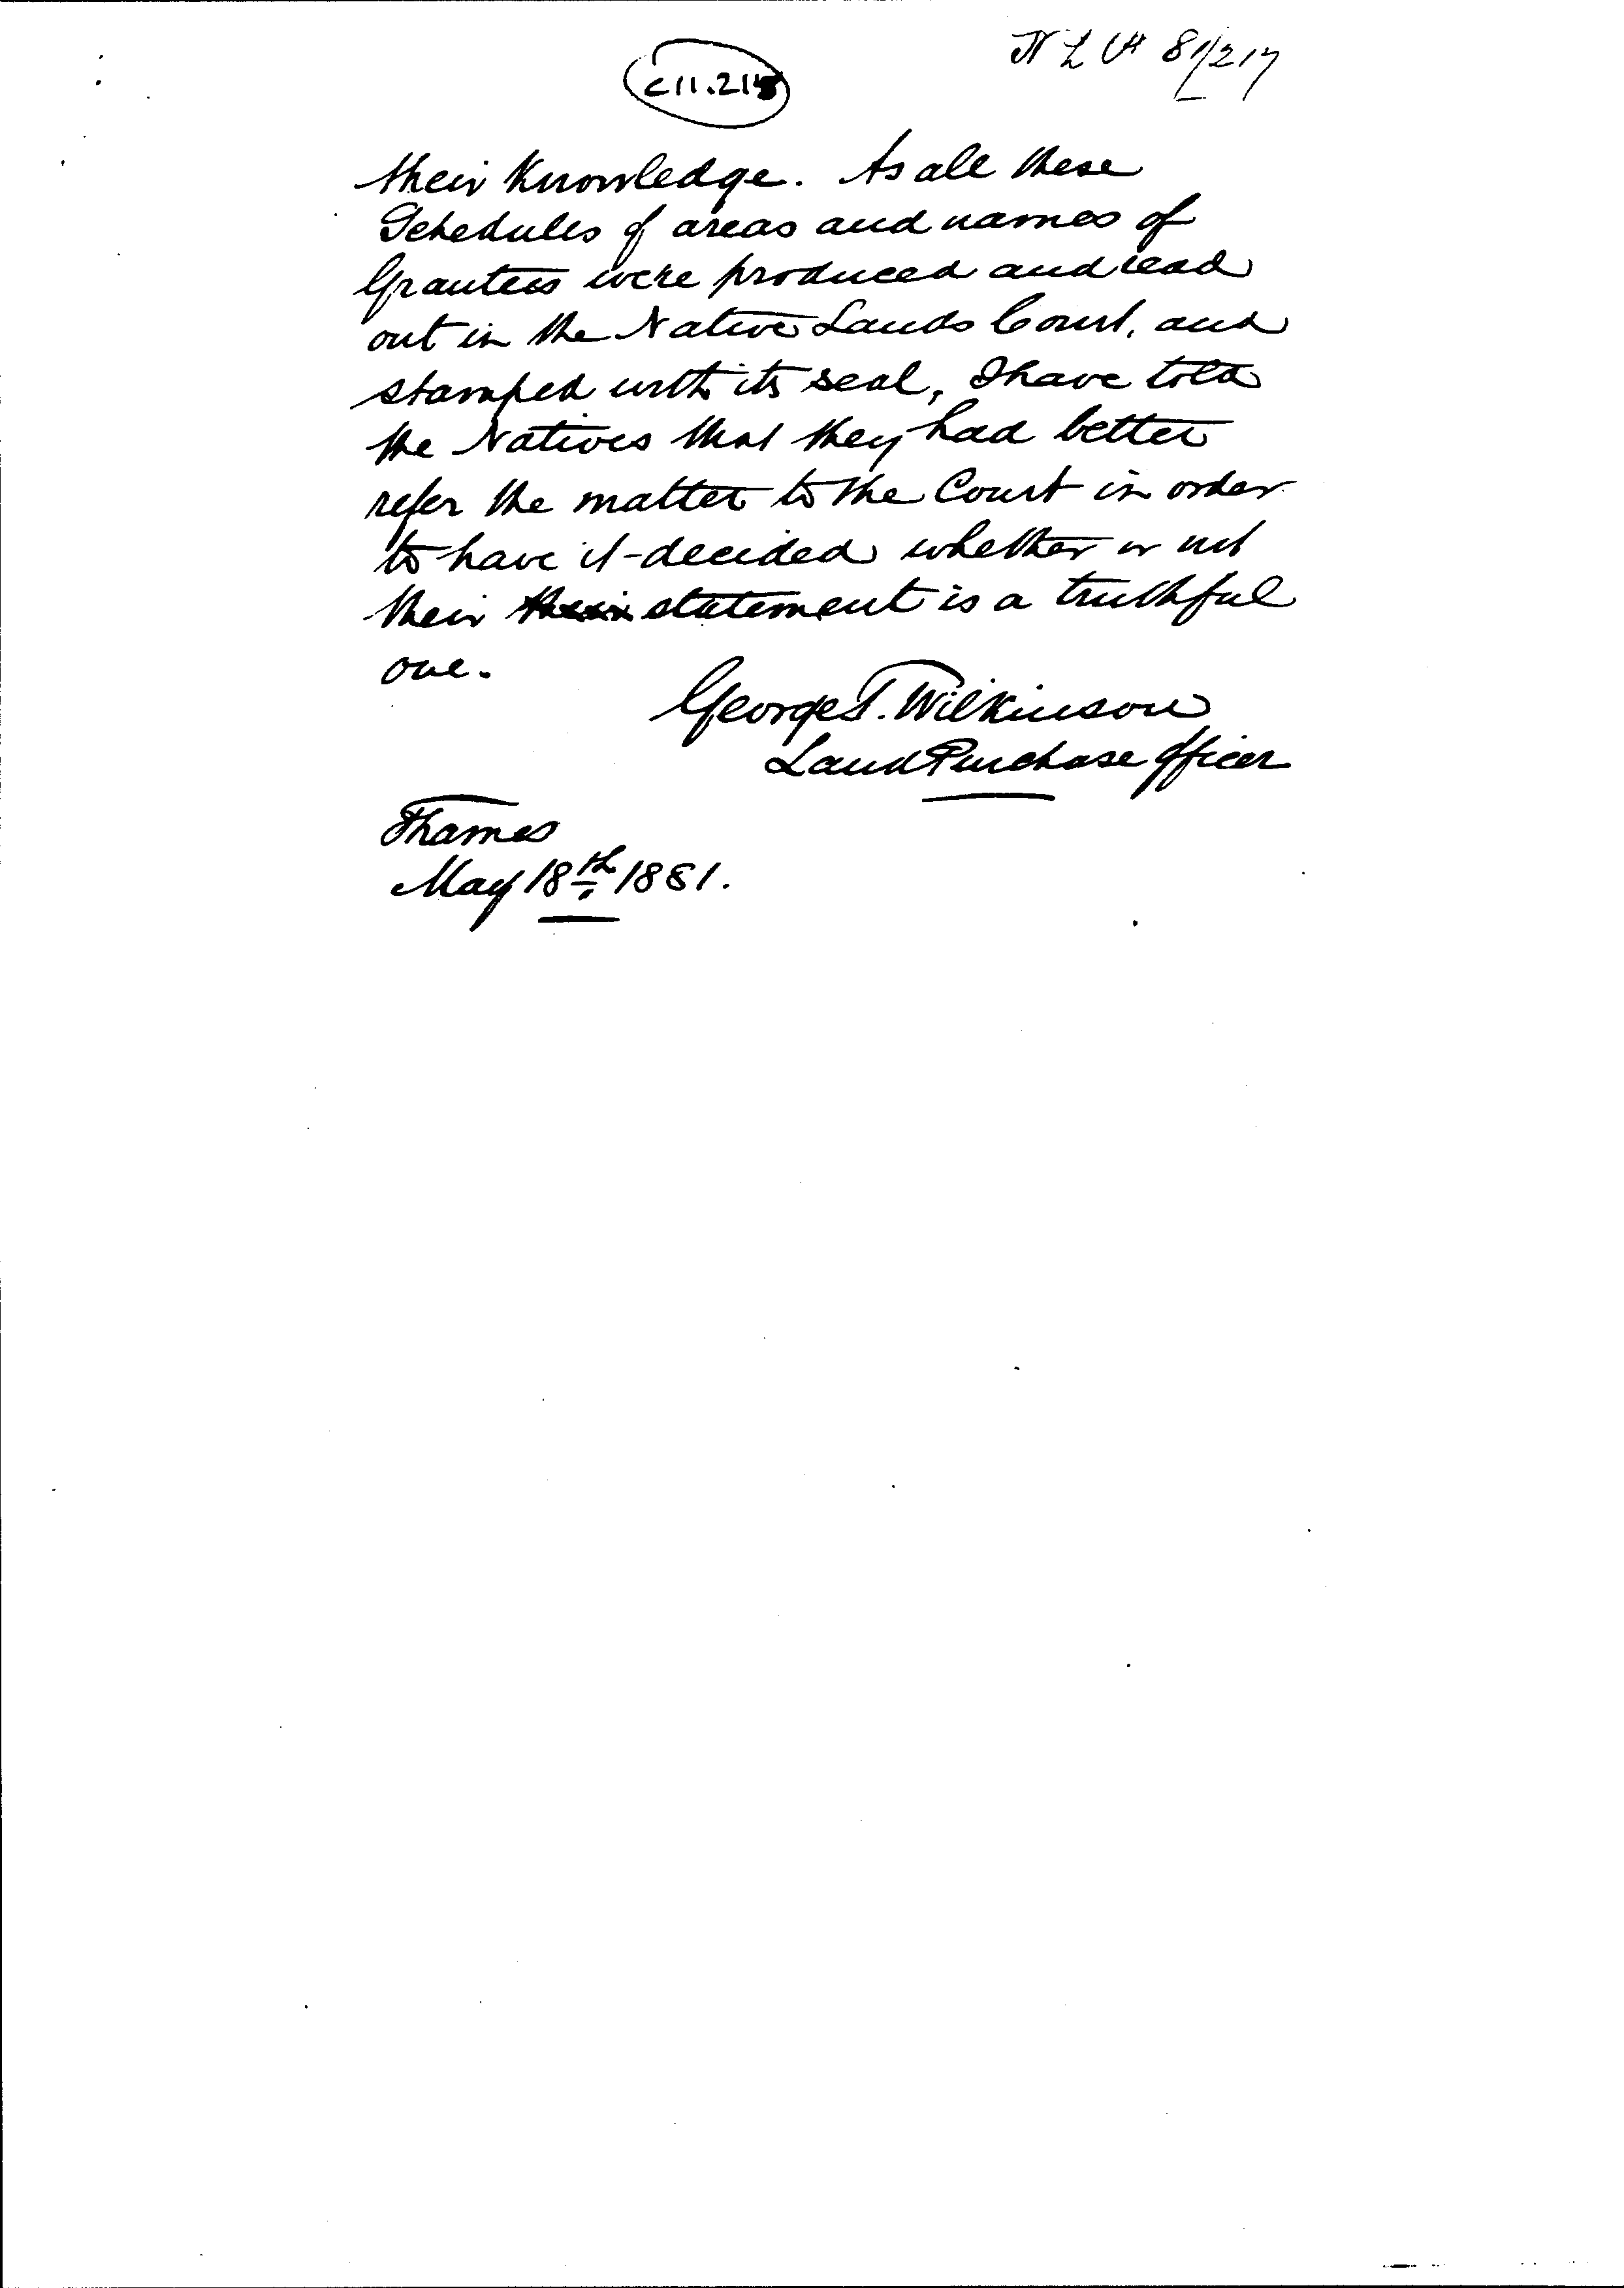 N L P 81/217
C11.215
their Knowledge. As all these
Schedules of areas and names of
Grantees were produced and read
out in the Native Lands Court, and
stamped with its seal, I have told
the Natives that they had better
refer the matter to the Court in order
to have it decided whether or not
their their statement is a truthful
one.
George T. Wilkinson
Land Purchase Officer
Thames
May 18th 1881.